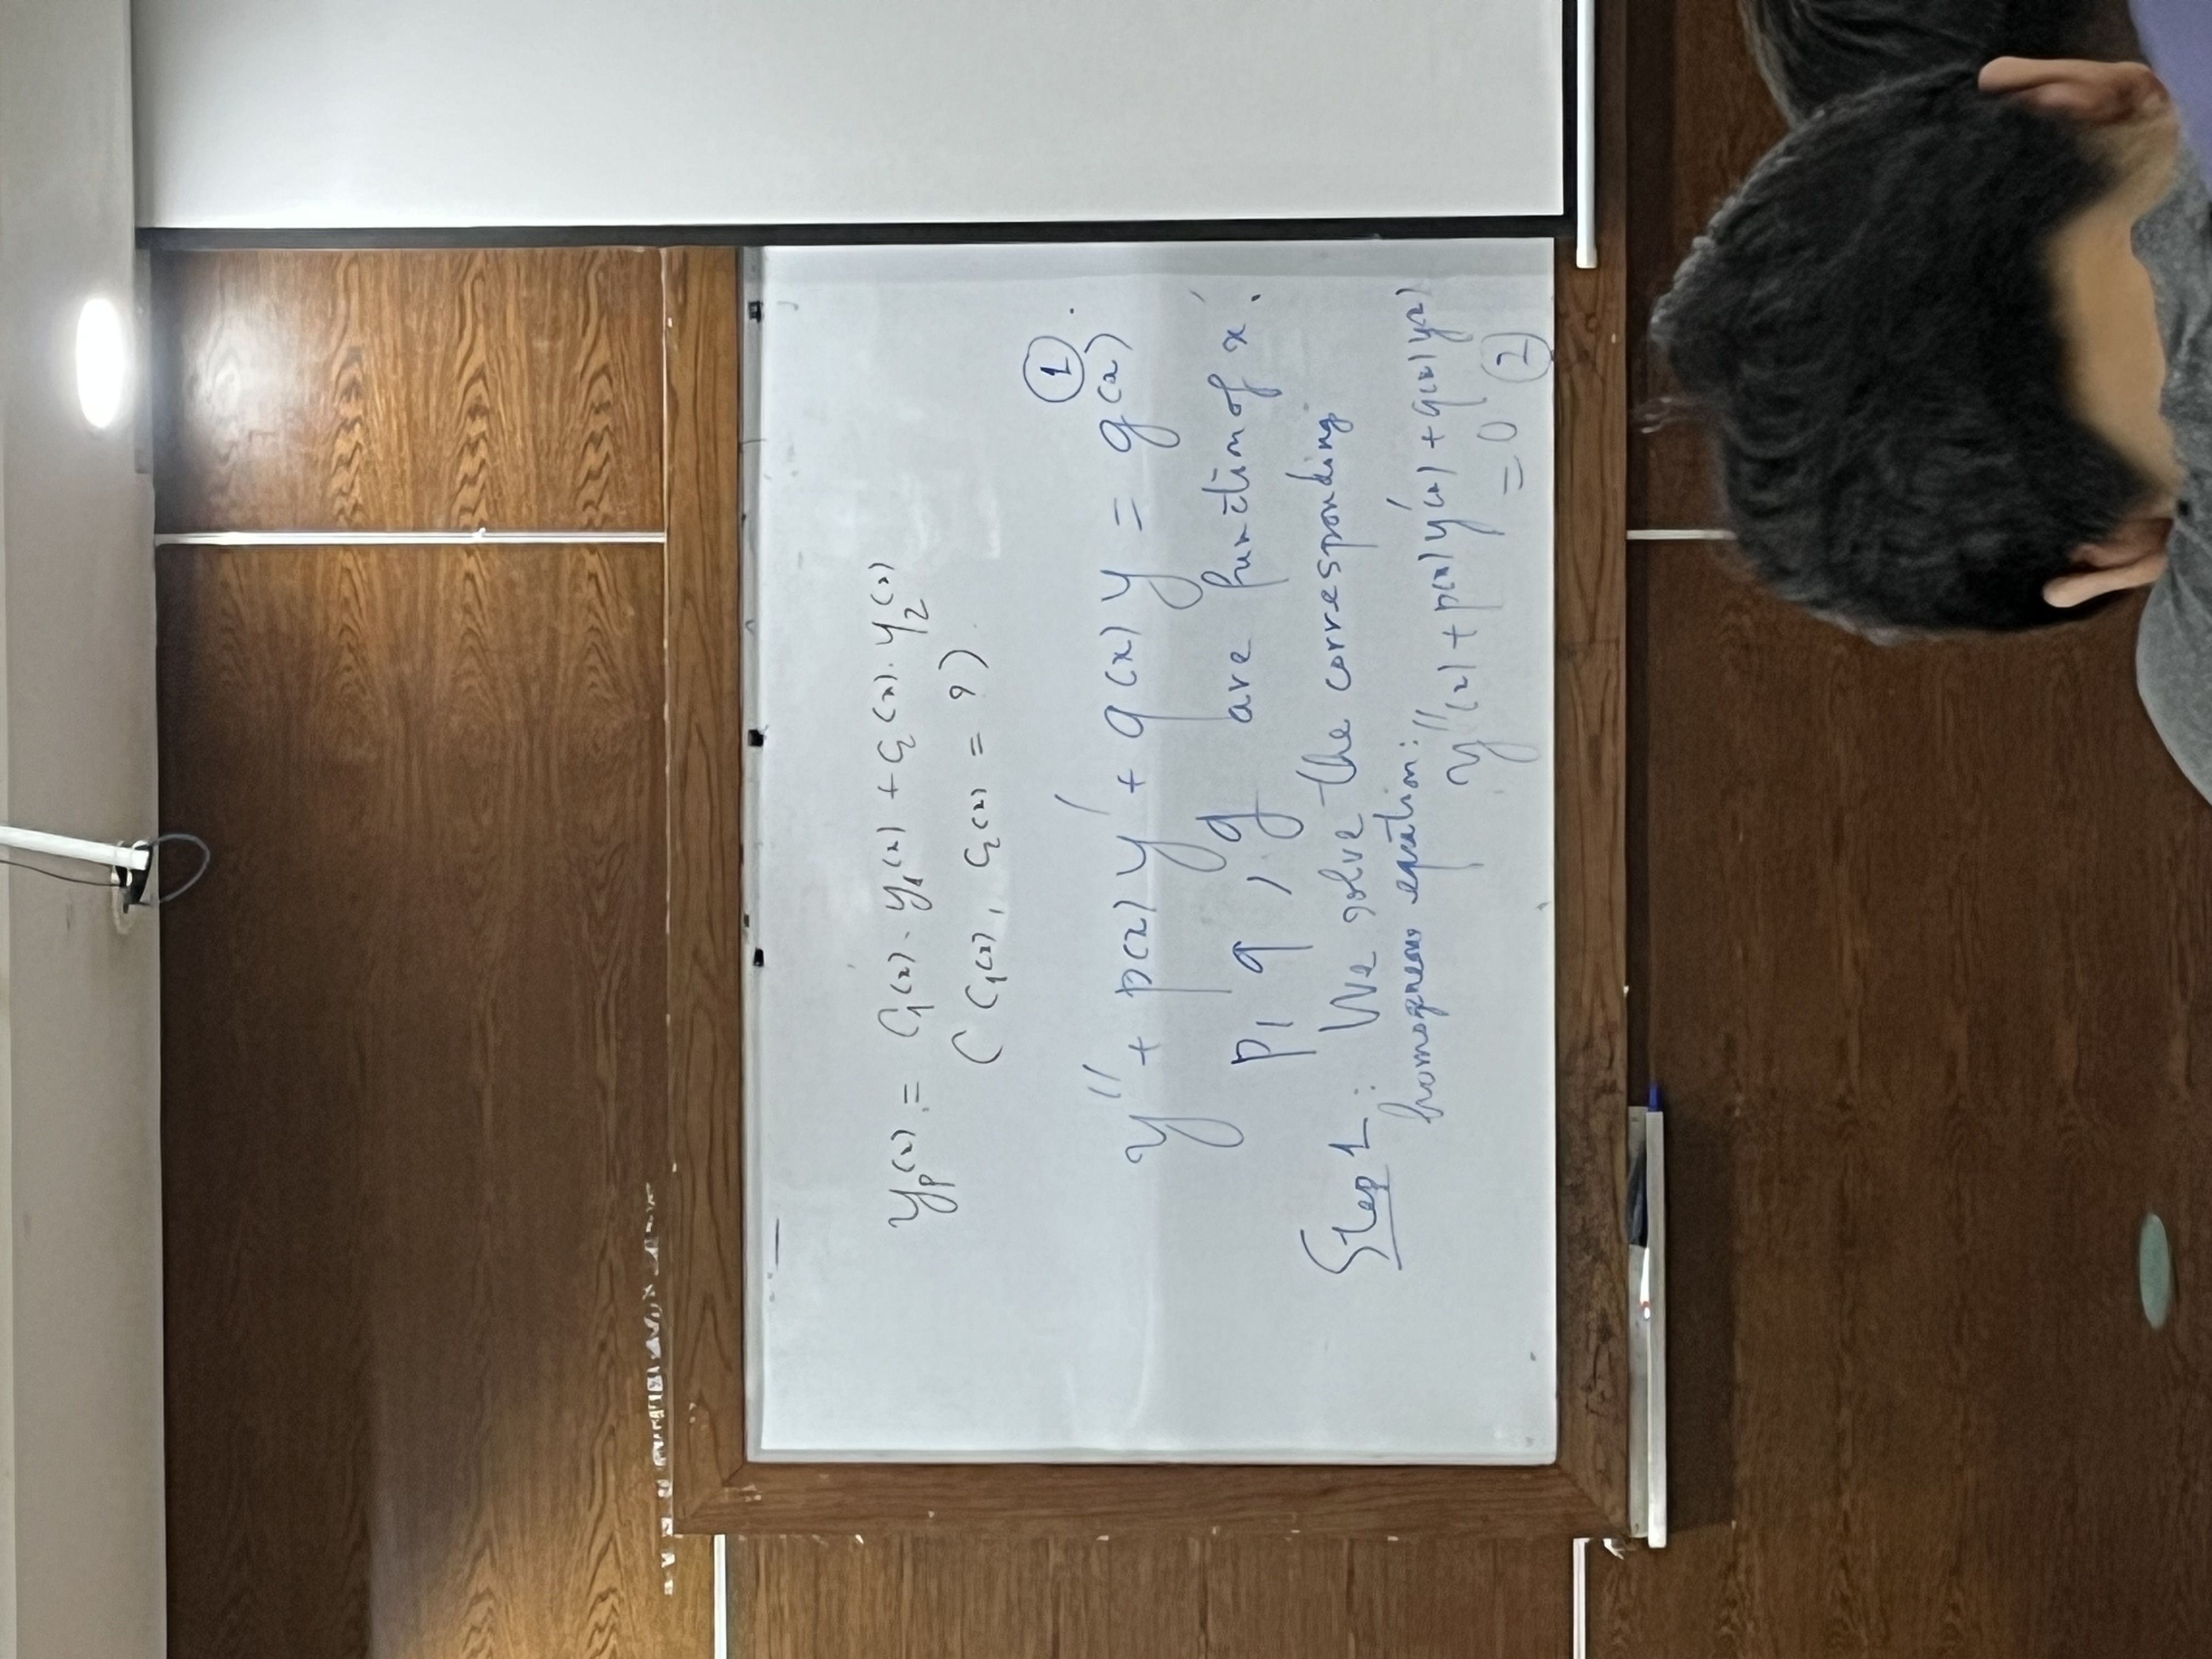 y_p(x) = C_1(x). y_1(x) + C_2(x). y_2(x)
( C_1(x), C_2(x) = ? )
1
y'' + p(x) y' + q(x) y = g(x)
p, q, g are function of x.
Step 1: We solve the corresponding
homogeneous equation:
y''(x) + p(x) y'(x) + q(x) y(x)
= 0 2